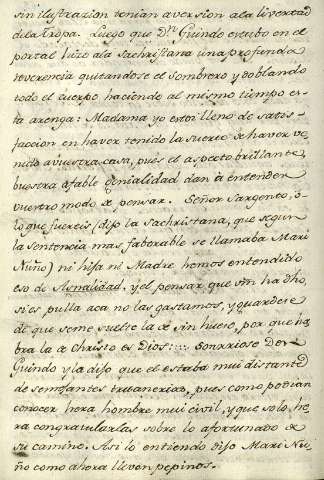 sin ilustrazion tenian aversion a la livertad
de la Tropa. Luego que Dn Guindo estubo en el
portal hizo a la Sachristana una profunda
reverencia quitandose el sombrero y doblando
todo el cuerpo haciendo al mismo tiempo es-
ta arenga: Madama yo estoi lleno de satis-
faccion en haver tenido la suerte de haver ve-
nido a vuestra casa, pues el aspecto brillante,
buestra afable genialidad dan à entender
vuestro modo de pensar. Señor Sargento, ò
lo que fuereis (dijo la Sachristana, que segun
la sentencia mas faborable se llamaba Mari
Nuño) ni hija ni Madre hemos entendido
eso de Asnalidad, y el pensar que vm ha dho,
si es pulla acà no las gastamos, y guardese
de que se me suelte la de sin hueso, por que ha
bra la de Christo es Dios: Sonrriose Don
Guindo y la dijo que el estaba mui distante
de semejantes truanerias, pues como podian
conocer hera hombre mui civil, y que solo he-
ra congratularlas sobre lo afortunado de
su camino. Asi lo entiendo dijo Mari Nu-
ño como ahora llueven pepinos.